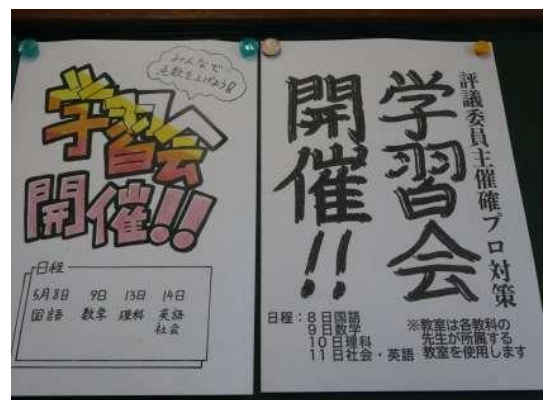 みんなで
点数を上げよう!!
学習会
開催!!
日程
5月8日 9日 13日 14日
国語 数学 理科 英語
社会
評議委員主催確プロ対策
学習会
開催!!
日程：8日国語
9日数学
10日理科
11日社会・英語
※教室は各教科の
先生が所属する
教室を使用します